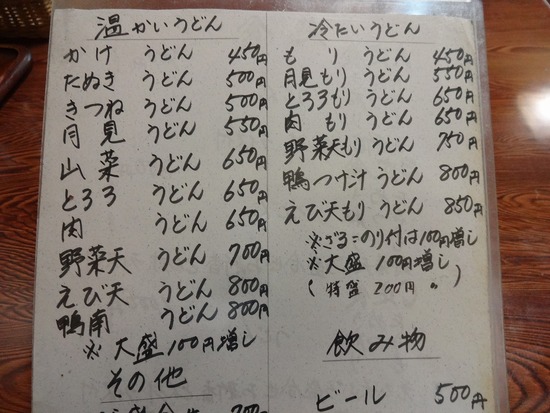 温かいうどん
かけ うどん 450円
たぬき うどん 500円
きつね うどん 500円
月見 うどん 550円
山菜 うどん 650円
とろろ うどん 650円
肉 うどん 650円
野菜天 うどん 700円
えび天 うどん 800円
鴨南 うどん 800円
※大盛100円増し
その他
冷たいうどん
もり うどん 450円
月見もり うどん 550円
とろろもり うどん 650円
肉もり うどん 650円
野菜天もり うどん 750円
鴨つけ汁 うどん 800円
えび天もり うどん 850円
※ざる=のり付は100円増し
※大盛 100円増し
(特盛 200円 〃)
飲み物
ビール 500円